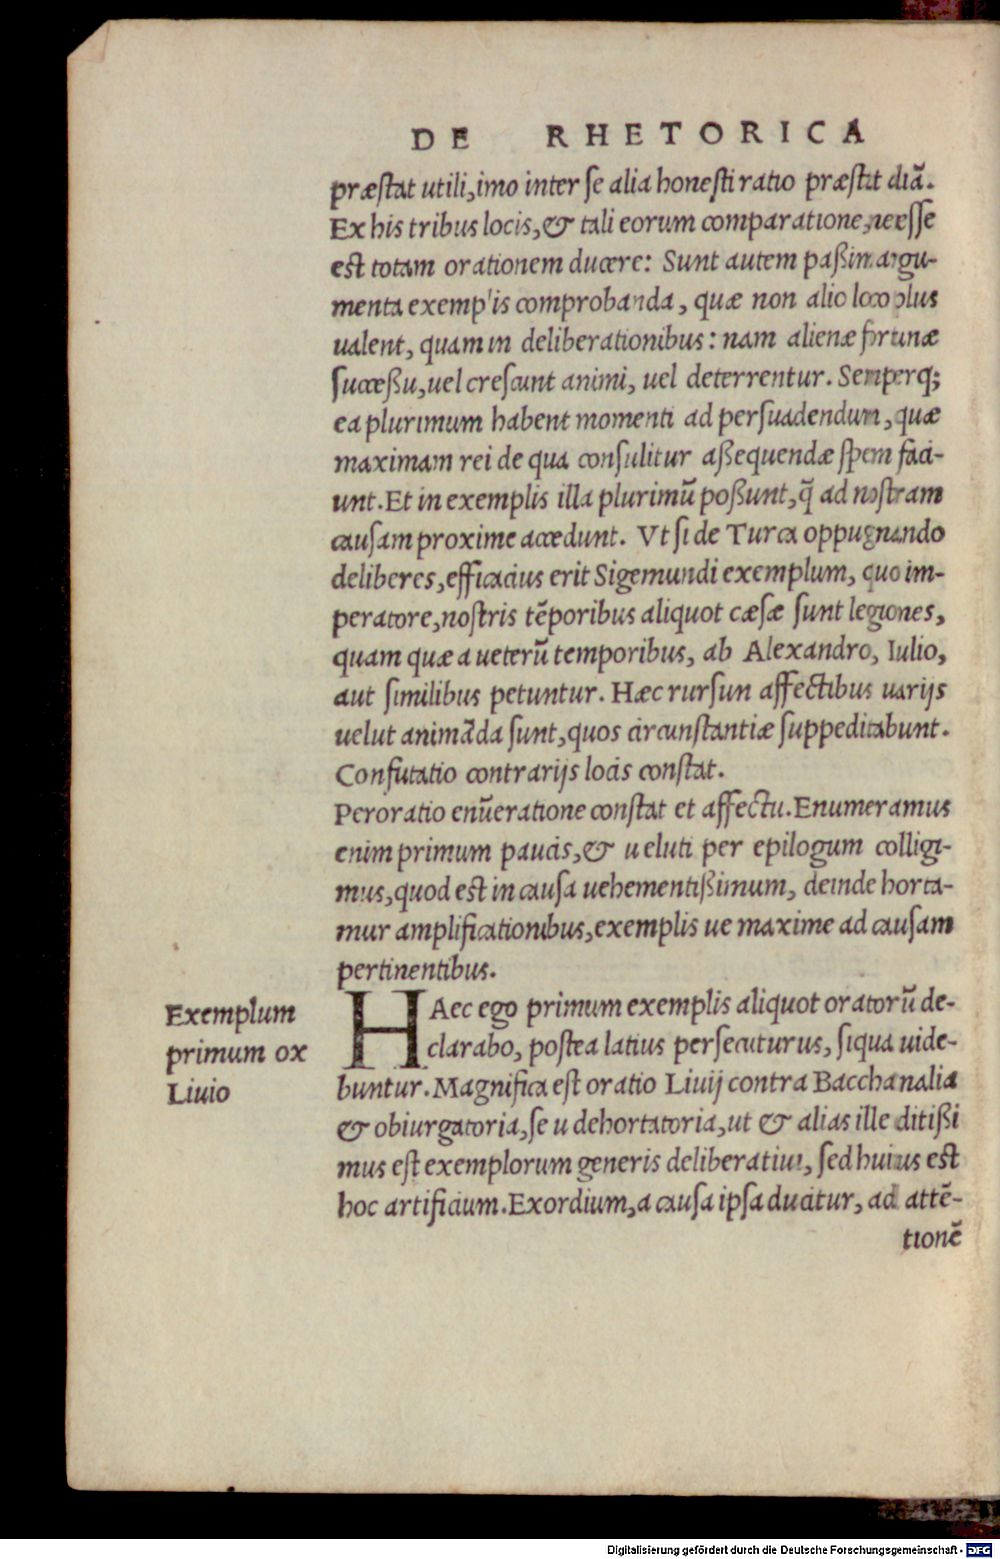 DE RHETORICA
præstat utili, imo inter se alia honesti ratio præstat aliā.
Ex his tribus locis, & tali eorum comparatione, necesse
est totam orationem ducere: Sunt autem paßim argu-
menta exemplis comprobanda, quæ non alio loco plus
ualent, quam in deliberationibus: nam alienæ fortunæ
succeßu, uel crescunt animi, uel deterrentur. Semperq;
ea plurimum habent momenti ad persuadendum, quæ
maximam rei de qua consulitur aßequendæ spem faci-
unt. Et in exemplis illa plurimū poßunt, q̄ ad nostram
causam proxime accedunt. Vt si de Turca oppugnando
deliberes, efficacius erit Sigemundi exemplum, quo im-
peratore, nostris tēporibus aliquot cæsæ sunt legiones,
quam quæ a ueterū temporibus, ab Alexandro, Iulio,
aut similibus petuntur. Hæc rursun affectibus uarijs
uelut animāda sunt, quos circunstantiæ suppeditabunt.
Confutatio contrarijs locis constat.
Peroratio enūeratione constat et affectu. Enumeramus
enim primum paucis, & ueluti per epilogum colligi-
mus, quod est in causa uehementißimum, deinde horta-
mur amplificationibus, exemplis ue maxime ad causam
pertinentibus.
Exemplum
primum ex
Liuio
HAec ego primum exemplis aliquot oratorū de-
clarabo, postea latius persecuturus, siqua uide-
buntur. Magnifica est oratio Liuij contra Bacchanalia
& obiurgatoria, se u dehortatoria, ut & alias ille ditißi
mus est exemplorum generis deliberatiui, sed huius est
hoc artificium. Exordium, a causa ipsa ducitur, ad attē-
tionē
Digitalisierung gefördert durch die Deutsche Forschungsgemeinschaft - DFG